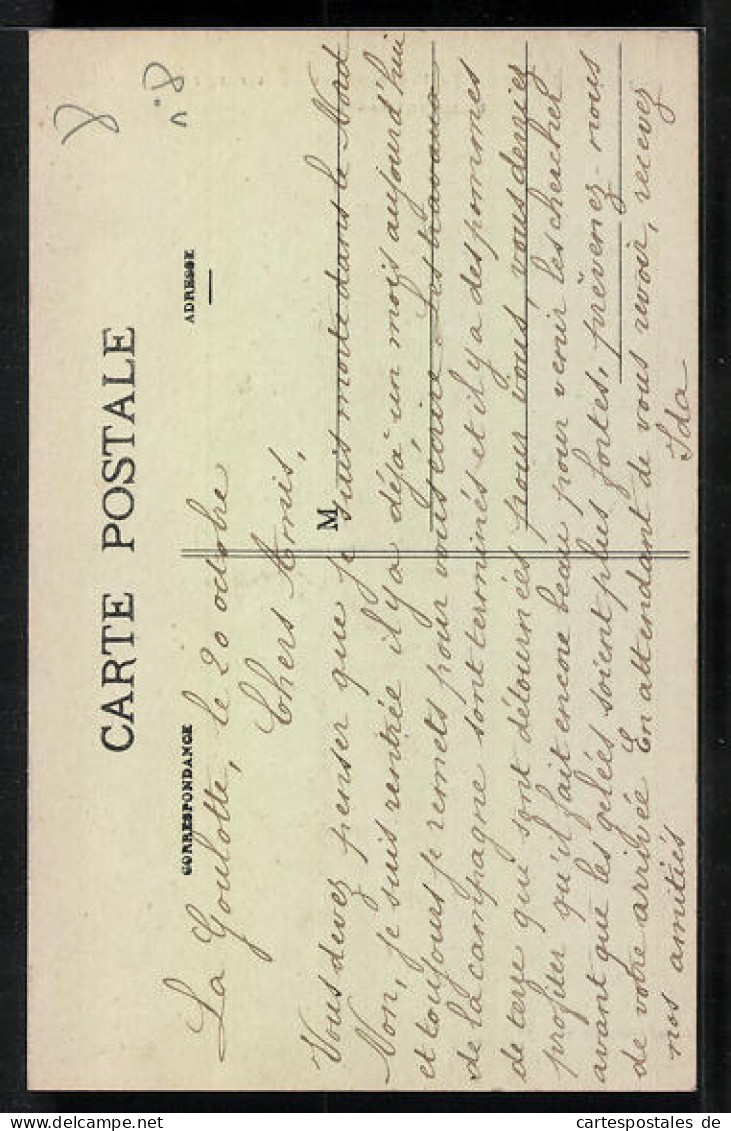 8
n° 8
CARTE POSTALE
CORRESPONDANCE
ADRESSE
La Goulotte, le 20 octobre
Chers Amis,
M
Vous devez penser que je suis morte dans le Nord
Non, je suis rentrée il y a déjà un mois aujourd'hui
et toujours je remets pour vous écrire. Les travaux
de la campagne sont terminés et il y a des pommes
de terre qui sont détournées pour vous, vous devriez
profiter qu'il fait encore beau pour venir les chercher
avant que les gelées soient plus fortes, prévenez-nous
de votre arrivée. En attendant de vous revoir, recevez
nos amitiés
Ida
cartespostales de